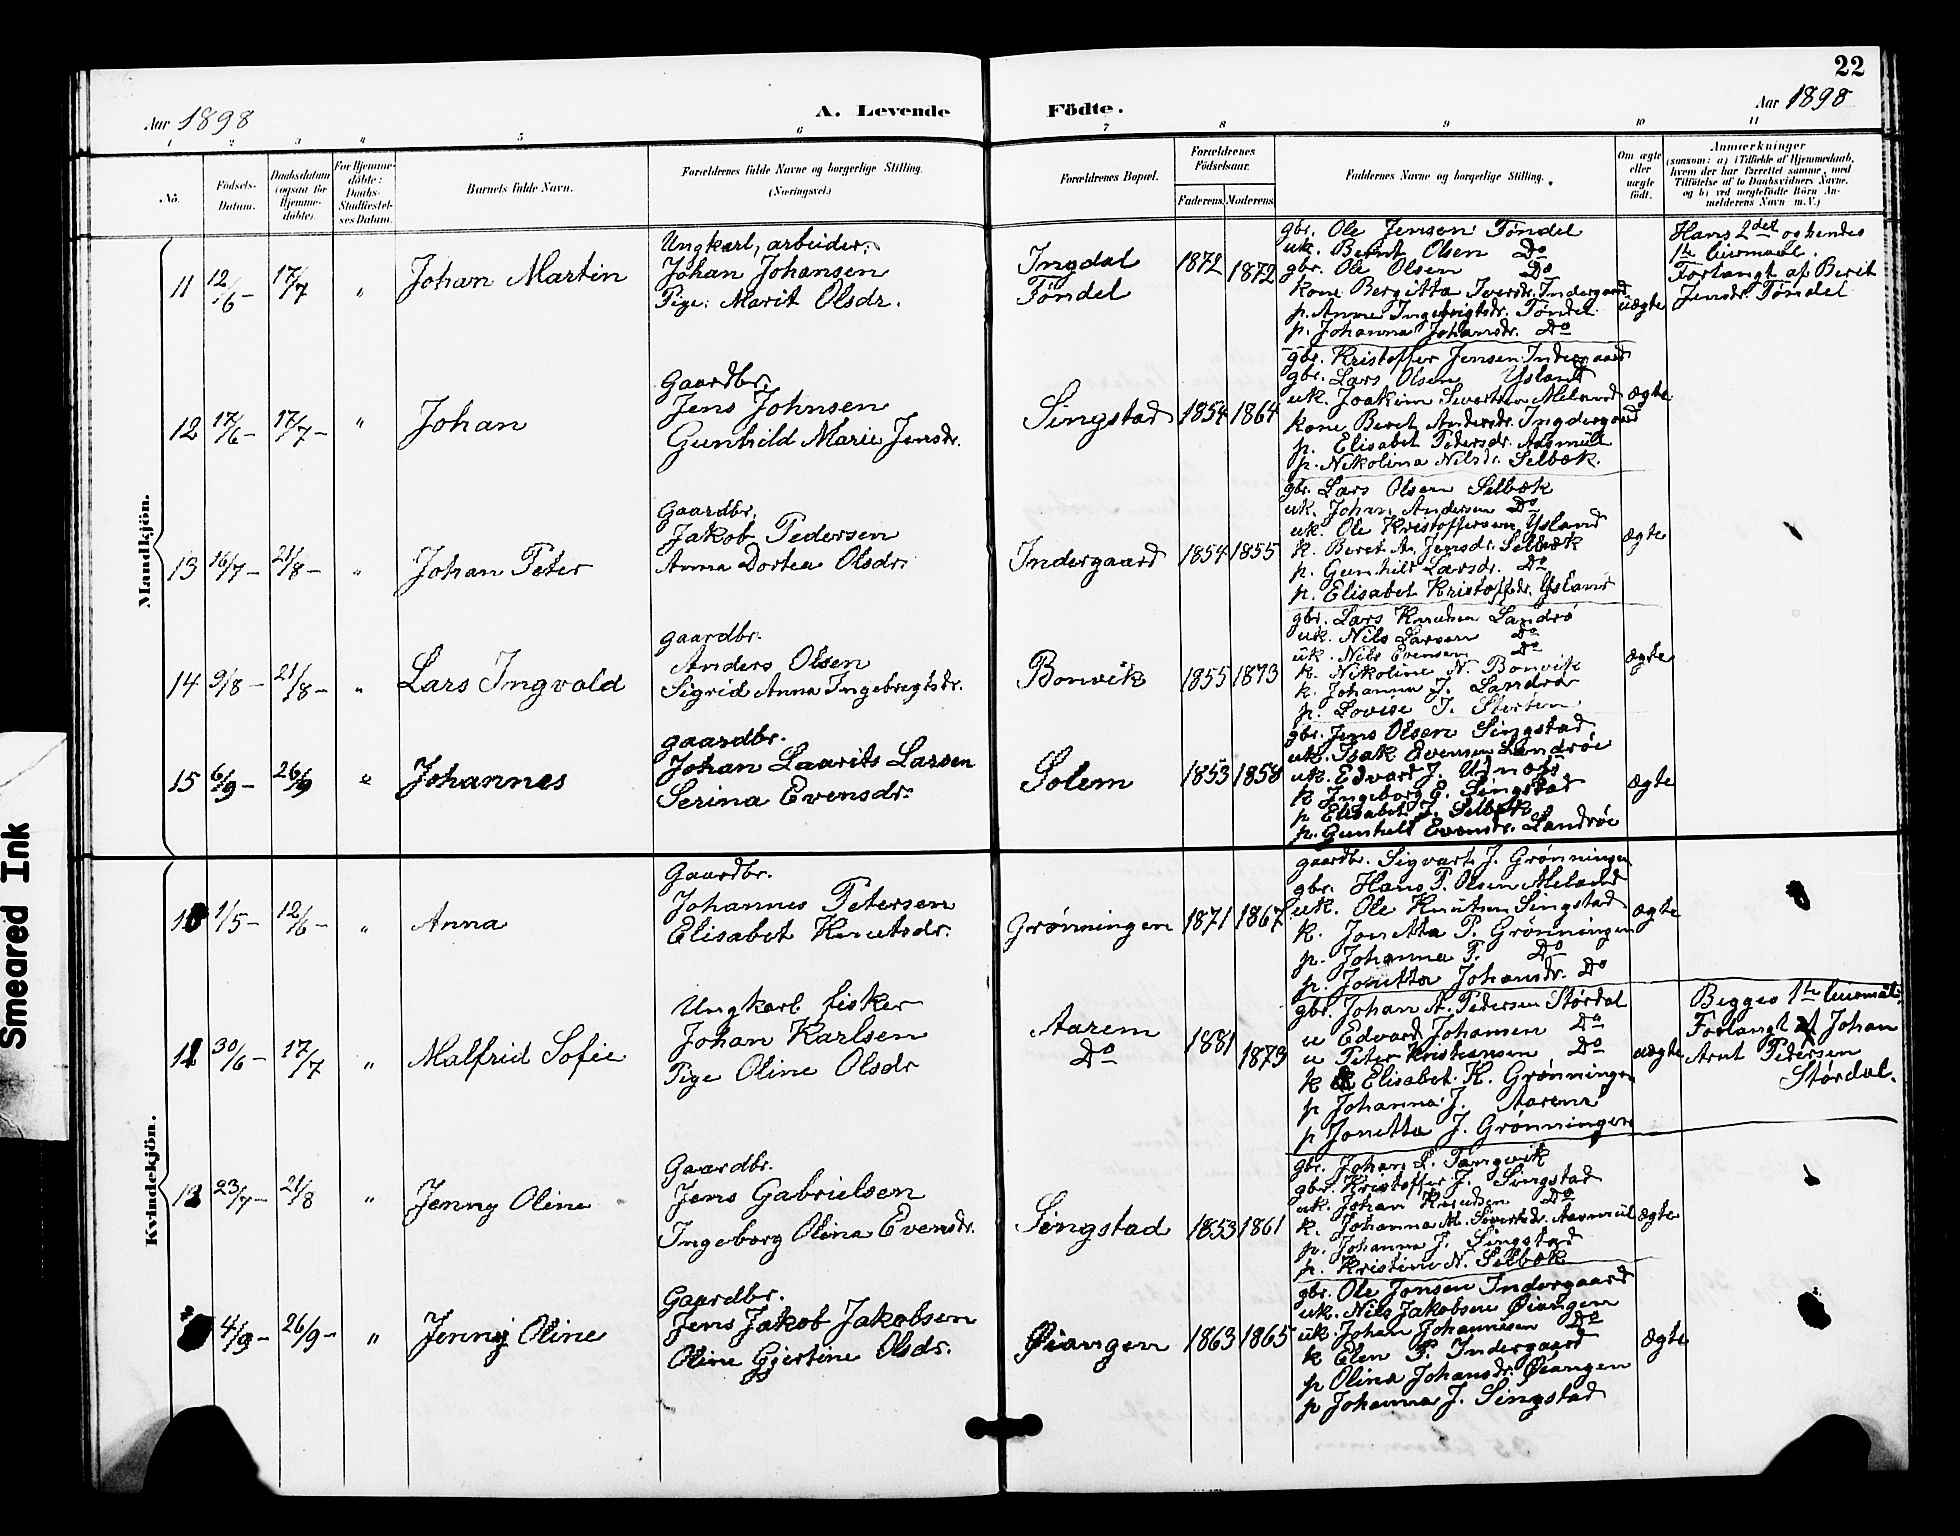 22
Aar 1898
A. Levende
Födte.
Aar 1898
1 2 3 4 5 6 7 8 9 10 11
No.
Födsels-
Datum.
Daabsdatum
(ogsaa for
Hjemme-
döbte).
For Hjemme-
döbte:
Daabs-
Stadfæstel-
ses Datum.
Barnets fulde Navn.
Forældrenes fulde Navne og borgerlige Stilling.
(Næringsvei.)
Forældrenes Bopæl.
Forældrenes
Födselsaar.
Faderens. Moderens.
Faddernes Navne og borgerlige Stilling.
Om ægte
eller
uægte
födt.
Anmærkninger
(saasom: a) i Tilfælde af Hjemmedaab,
hvem der har forrettet samme, med
Tilföielse af to Daabsvidners Navne,
og b) ved uægtefödte Börn An-
melderens Navn m. V.)
Mandkjön.
11 12/6 – 17/7 " Johan Martin
Ungkarl, arbeider.
Johan Johansen
Pige. Marit Olsdr.
Ingdal
Tøndel
1872 1872
gbr. Ole Jensen Tøndel
uk. Bernt Olsen Do
gbr. Ole Olsen Do
kone Bergitta Iversdr. Indergaard
p. Anne Ingebrigtsdr. Tøndel
p. Johanna Johansdr. Do
uægte
Hans 2det og hendes
1te leiermaal.
Forlangt af Berit
Jensdr. Tøndel
12 17/6 – 17/7 – " Johan
Gaardbr.
Jens Johnsen
Gunhild Marie Jensdr.
Singstad
1854 1864
gbr. Kristoffer Jensen Indergaard
gbr. Lars Olsen Ysland
uk. Joakim Sivertsen Meland
kone Beret Andersdr. Ingdergaard
p. Elisabet Pedersdr. Aasmül
p. Nikolina Nilsdr. Selbæk.
ægte
13 16/7 – 21/8 – " Johan Peter
Gaardbr.
Jakob Pedersen
Anna Dortea Olsdr.
Indergaard
1854 1855
gbr. Lars Olsen Selbæk
uk. Johan Andersen Do
uk. Ole Kristoffersen Ysland
k. Beret A. Jensdr. Selbæk
p. Gunhild Larsdr. Do
p. Elisabet Kristoffdr. Ysland
ægte
14 9/8 – 21/8 – " Lars Ingvald
gaardbr.
Anders Olsen
Sigrid Anna Ingebregtsdr.
Bonvik
1855 1873
gbr. Lars Knudsen Landrø
uk. Nils Larsen Do
uk. Nils Evensen Do
k. Nikoline N. Bonvik
k. Johanna J. Landrø
p. Lovise J. Storten
ægte
15 6/9 – 26/9 " Johannes
gaardbr.
Johan Laurits Larsen
Serina Evensdr.
Solem
1853 1858
gbr. Jens Olsen Singstad
uk. Isak Evensen Landrøe
uk. Edvard J.
k Ingeborg E. Singstad
p Elisabet J. Selbæk
p. Gunhild Evensdr. Landrøe
ægte
Kvindekjön.
10 1/5 – 12/6 – " Anna
Gaardbr.
Johannes Petersen
Elisabet Knutsdr.
Grønningen
1871 1867
gaardbr. Sigvart J. Grønningen
gbr. Hans P. Olsen Meland
uk. Ole Knutsen Singstad
k. Jonetta P. Grønningen
p. Johanna P. Do
p. Jonetta Johansdr. Do
ægte
11 30/6 – 17/7 " Malfrid Sofie
Ungkarl fisker
Johan Karlsen
Pige Oline Olsdr
Aarem
Do
1881 1873
gbr. Johan A. Pedersen Størdal
u Edvard Johansen Do
u Peter Kristiansen Do
k Elisabet K. Grønningen
p Johanna J. Aarem
p Jonetta J. Grønningen
uægte
Begges 1te leiermaal.
Forlangt af Johan
Arnt Pedersen
Størdal.
12 23/7 – 21/8 " Jenny Oline
Gaardbr.
Jens Gabrielsen
Ingeborg Olina Evensdr.
Singstad
1853 1861
gbr. Johan L. Tangvik
gbr. Kristoffer J. Singstad
uk. Johan Knudsen Do
k. Johanna M. Sivertsdr. Aasmül
p. Johanna J. Singstad
p. Kristine N. Selbæk
ægte
4/9 – 26/9 – " Jenny Oline
Gaardbr.
Jens Jakob Jakobsen
Oline Gjertine Olsdr.
Øiangen
1863 1865
gbr. Ole Jonsen Indergaard
uk. Nils Jakobsen Øiangen
uk. Johan Johannesen Do
k Elen P. Indergaard
p Olina Johansdr. Øiangen
p Johanna J. Singstad
ægte
Smeared Ink